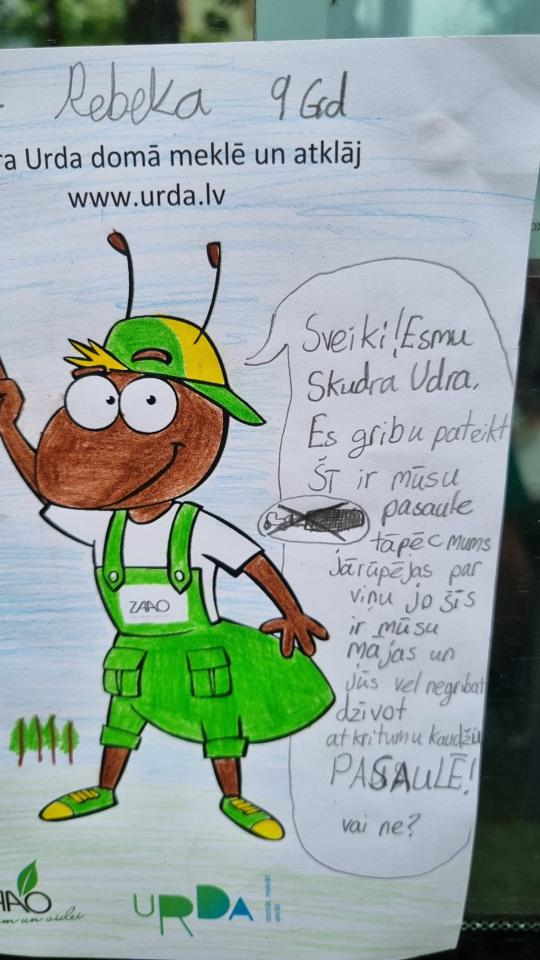 Rebeka 9 Grd
Urda domā meklē un atklāj
www.urda.lv
Sveiki! Esmu
Skudra Udra.
Es gribu pateikt
Šī ir mūsu
pasaule
tāpēc mums
jārūpējas par
viņu jo šīs
ir mūsu
majas un
jūs vel negribat
dzīvot
atkritumu kaudžu
PASAULĒ!
vai ne?
ZAAO
URDA
domāt. meklēt.
atklāt.